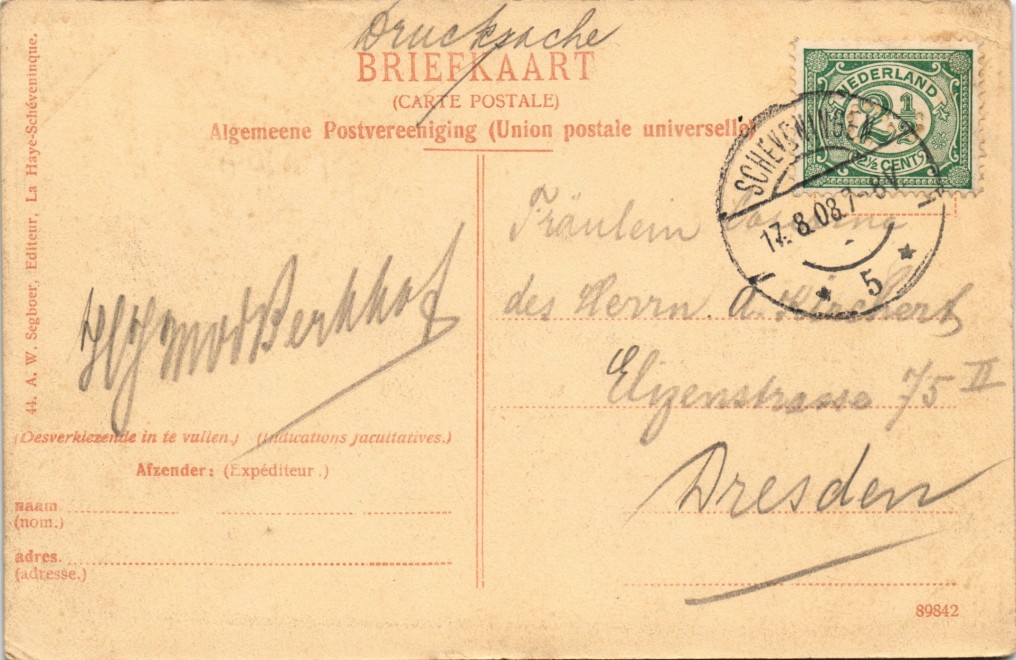 Drucksache
BRIEFKAART
(CARTE POSTALE)
Algemeene Postvereeniging (Union postale universelle)
NEDERLAND
2½
2½ CENT
SCHEVENINGEN
17.8.08.7-8V
5
44. A. W. Segboer, Editeur, La Haye-Schéveninque.
Fräulein
des Herrn. A.
Elizenstrasse 75 II
Dresden
(Desverkiezende in te vullen.) (Indications facultatives.)
Afzender: (Expéditeur.)
naam
(nom.)
adres.
(adresse.)
89842